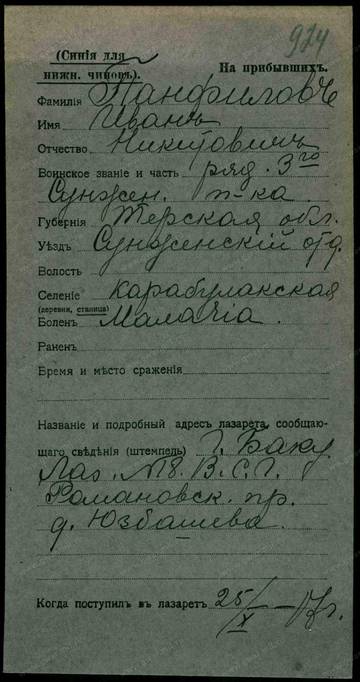 974
(Синія для
нижн. чиновъ).
На прибывшихъ.
Фамилія Панфиловъ
Имя Иванъ
Отчество Никитовичъ
Воинское званіе и часть ряд. 3го
Сунжен. п-ка
Губернія Терская обл.
Уѣздъ Сунженскій отд.
Волость
Селеніе Карабулакская
(деревня, станица)
Боленъ Малачіа.
Раненъ
Время и мѣсто сраженія
Названіе и подробный адресъ лазарета, сообщаю-
щаго свѣдѣнія (штемпель) Г. Баку
Лаз. №8. В.С.Г.
Романовск. пр.
д. Юзбашева.
Когда поступилъ въ лазаретъ 25/X – 17г.